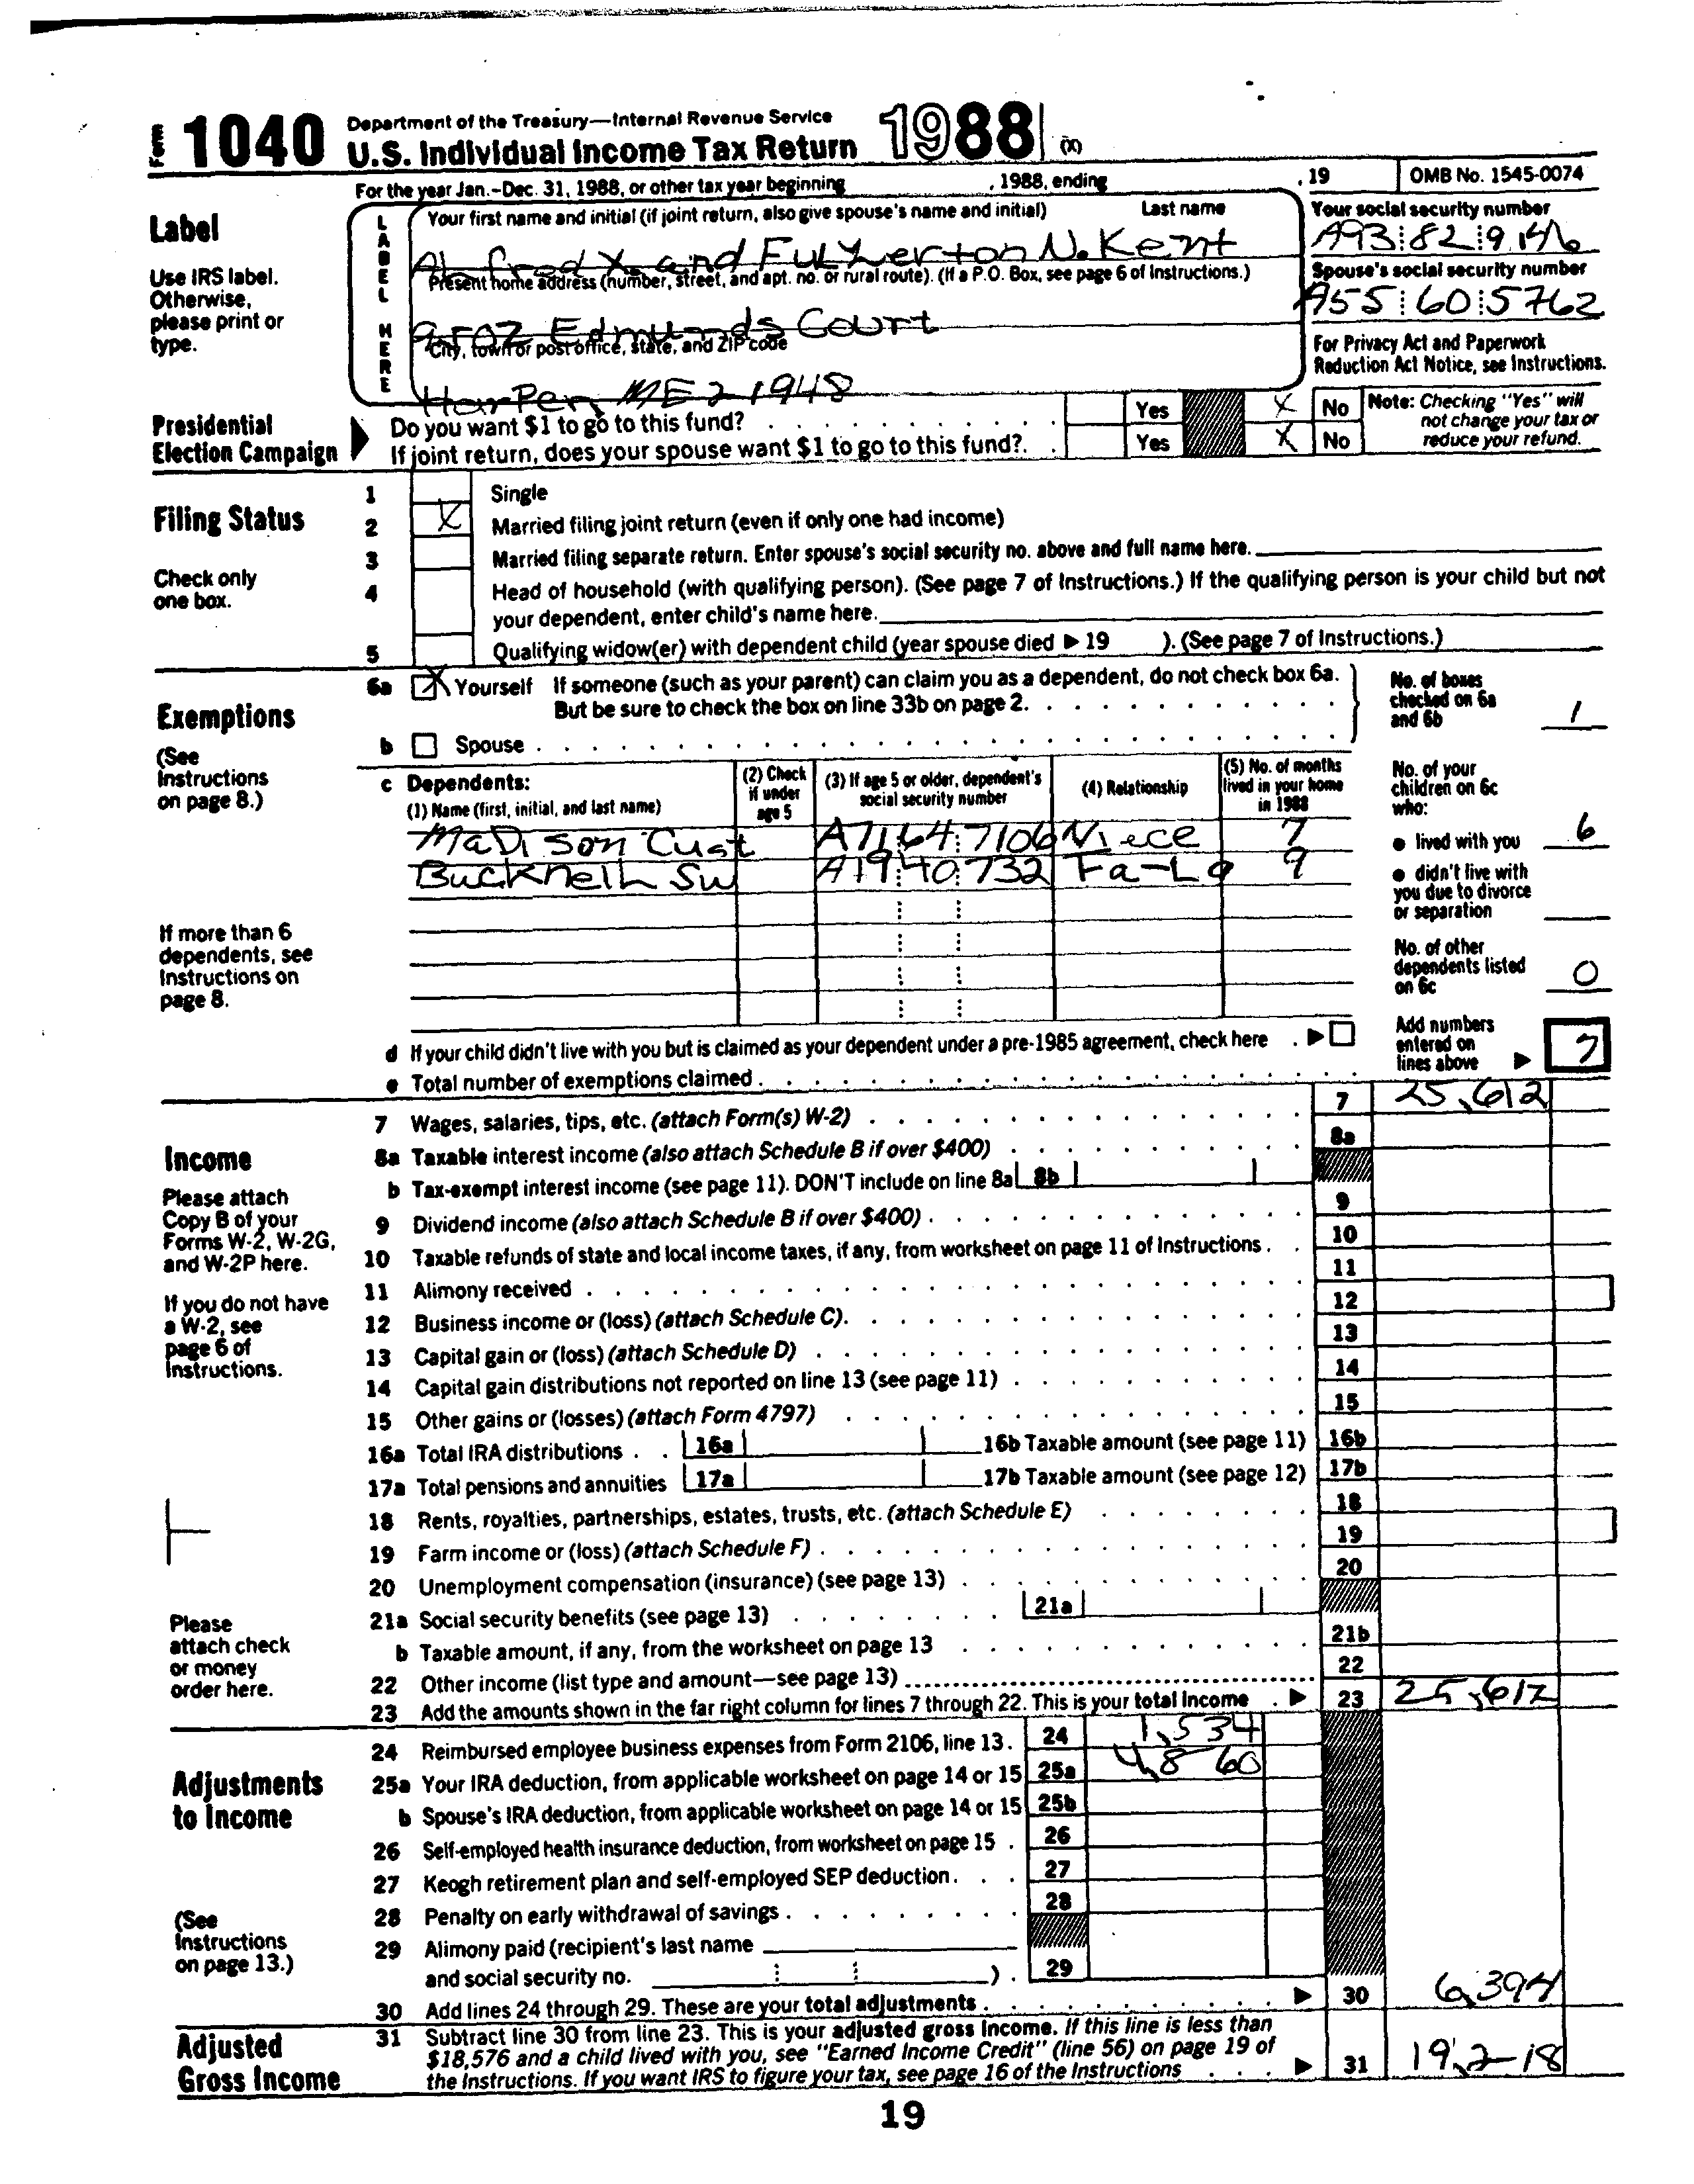 Form 1040 Department of the Treasury—Internal Revenue Service
U.S. Individual Income Tax Return 1988 (X)
For the year Jan.-Dec. 31, 1988, or other tax year beginning , 1988, ending , 19 OMB No. 1545-0074
Label
Use IRS label.
Otherwise,
please print or
type.
LABEL HERE
Your first name and initial (if joint return, also give spouse's name and initial) Last name
Alfred X. and Fullerton N. Kent
Present home address (number, street, and apt. no. or rural route). (If a P.O. Box, see page 6 of Instructions.)
Edmunds Court
City, town or post office, state, and ZIP code
Harper, ME 21948
Your social security number
A93 82 9146
Spouse's social security number
A55 60 5762
For Privacy Act and Paperwork
Reduction Act Notice, see Instructions.
Presidential
Election Campaign
Do you want $1 to go to this fund? Yes X No
If joint return, does your spouse want $1 to go to this fund?. Yes X No
Note: Checking "Yes" will
not change your tax or
reduce your refund.
Filing Status
Check only
one box.
1 Single
2 X Married filing joint return (even if only one had income)
3 Married filing separate return. Enter spouse's social security no. above and full name here.
4 Head of household (with qualifying person). (See page 7 of Instructions.) If the qualifying person is your child but not
your dependent, enter child's name here.
5 Qualifying widow(er) with dependent child (year spouse died ▶ 19 ). (See page 7 of Instructions.)
Exemptions
(See
Instructions
on page 8.)
6a X Yourself If someone (such as your parent) can claim you as a dependent, do not check box 6a.
But be sure to check the box on line 33b on page 2.
b Spouse
No. of boxes
checked on 6a
and 6b 1
c Dependents:
(1) Name (first, initial, and last name)
(2) Check
if under
age 5
(3) If age 5 or older, dependent's
social security number
(4) Relationship
(5) No. of months
lived in your home
in 1988
Madison Cust A71 64 7106 Niece 7
Bucknell Sw A19 40 732 Fa-La 9
If more than 6
dependents, see
Instructions on
page 8.
No. of your
children on 6c
who:
● lived with you 6
● didn't live with
you due to divorce
or separation
No. of other
dependents listed
on 6c 0
Add numbers
entered on
lines above ▶ 7
d If your child didn't live with you but is claimed as your dependent under a pre-1985 agreement, check here . ▶
e Total number of exemptions claimed
Income
Please attach
Copy B of your
Forms W-2, W-2G,
and W-2P here.
If you do not have
a W-2, see
page 6 of
Instructions.
Please
attach check
or money
order here.
7 Wages, salaries, tips, etc. (attach Form(s) W-2) 7 25,612
8a Taxable interest income (also attach Schedule B if over $400) 8a
b Tax-exempt interest income (see page 11). DON'T include on line 8a 8b
9 Dividend income (also attach Schedule B if over $400) 9
10 Taxable refunds of state and local income taxes, if any, from worksheet on page 11 of Instructions 10
11 Alimony received 11
12 Business income or (loss) (attach Schedule C) 12
13 Capital gain or (loss) (attach Schedule D) 13
14 Capital gain distributions not reported on line 13 (see page 11) 14
15 Other gains or (losses) (attach Form 4797) 15
16a Total IRA distributions 16a 16b Taxable amount (see page 11) 16b
17a Total pensions and annuities 17a 17b Taxable amount (see page 12) 17b
18 Rents, royalties, partnerships, estates, trusts, etc. (attach Schedule E) 18
19 Farm income or (loss) (attach Schedule F) 19
20 Unemployment compensation (insurance) (see page 13) 20
21a Social security benefits (see page 13) 21a
b Taxable amount, if any, from the worksheet on page 13 21b
22 Other income (list type and amount—see page 13) 22
23 Add the amounts shown in the far right column for lines 7 through 22. This is your total income ▶ 23 25,612
Adjustments
to Income
(See
Instructions
on page 13.)
24 Reimbursed employee business expenses from Form 2106, line 13. 24 1,534
25a Your IRA deduction, from applicable worksheet on page 14 or 15 25a 4,860
b Spouse's IRA deduction, from applicable worksheet on page 14 or 15 25b
26 Self-employed health insurance deduction, from worksheet on page 15 26
27 Keogh retirement plan and self-employed SEP deduction 27
28 Penalty on early withdrawal of savings 28
29 Alimony paid (recipient's last name
and social security no. ) . 29
30 Add lines 24 through 29. These are your total adjustments ▶ 30 6,394
Adjusted
Gross Income
31 Subtract line 30 from line 23. This is your adjusted gross income. If this line is less than
$18,576 and a child lived with you, see "Earned Income Credit" (line 56) on page 19 of
the Instructions. If you want IRS to figure your tax, see page 16 of the Instructions ▶ 31 19,218
19